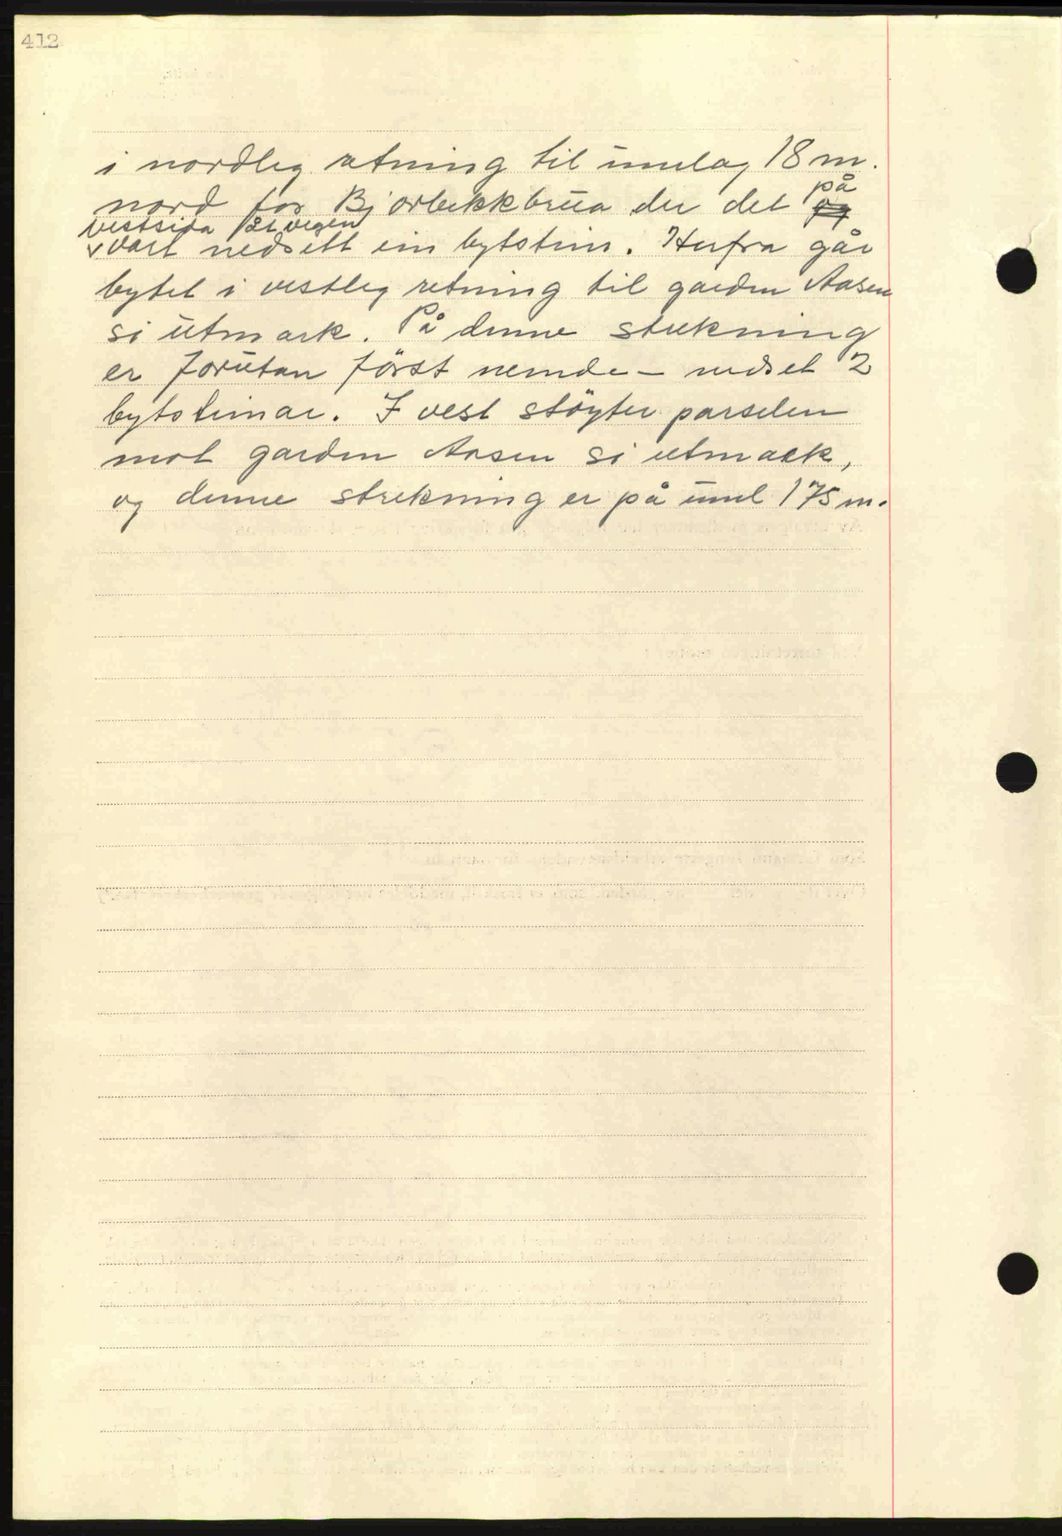 412
i nordleg retning til umlag 18 m.
nord for Bjorbekkbrua der det og på
vestsida av vegen
vart nedsett ein bytstein. Herfra går
bytet i vestleg retning til garden Aasen
si utmark. På denne strekning
er forutan först nemde – nedset 2
bytsteinar. I vest stöyter parselen
mot garden Aasen si utmark,
og denne strekning er på uml 175 m.